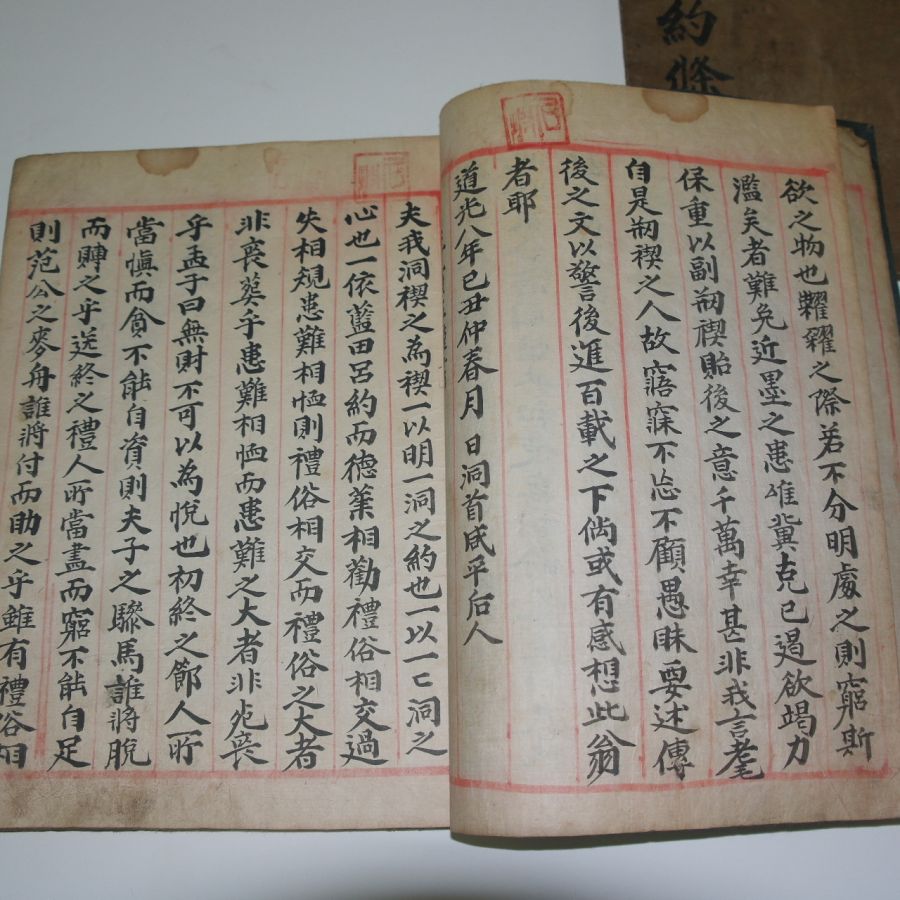 約條
欲之物也糶糴之際若不分明處之則窮斯
濫矣者難免近墨之患唯冀克己遏欲竭力
保重以副刱禊貽後之意千萬幸甚非我言耄
自是刱禊之人故寤寐不忘不顧愚昧要述傳
後之文以警後進百載之下倘或有感想此翁
者耶
道光八年己丑仲春月 日洞首咸平后人
夫我洞禊之為禊一以明一洞之約也一以一洞之
心也一依藍田呂約而德業相勸禮俗相交過
失相規患難相恤則禮俗相交而禮俗之大者
非喪葬乎患難相恤而患難之大者非死喪
乎孟子曰無財不可以為悅也初終之節人所
當愼而貧不能自資則夫子之驂馬誰將脫
而賻之乎送終之禮人所當盡而窮不能自足
則范公之麥舟誰將付而助之乎雖有禮俗相